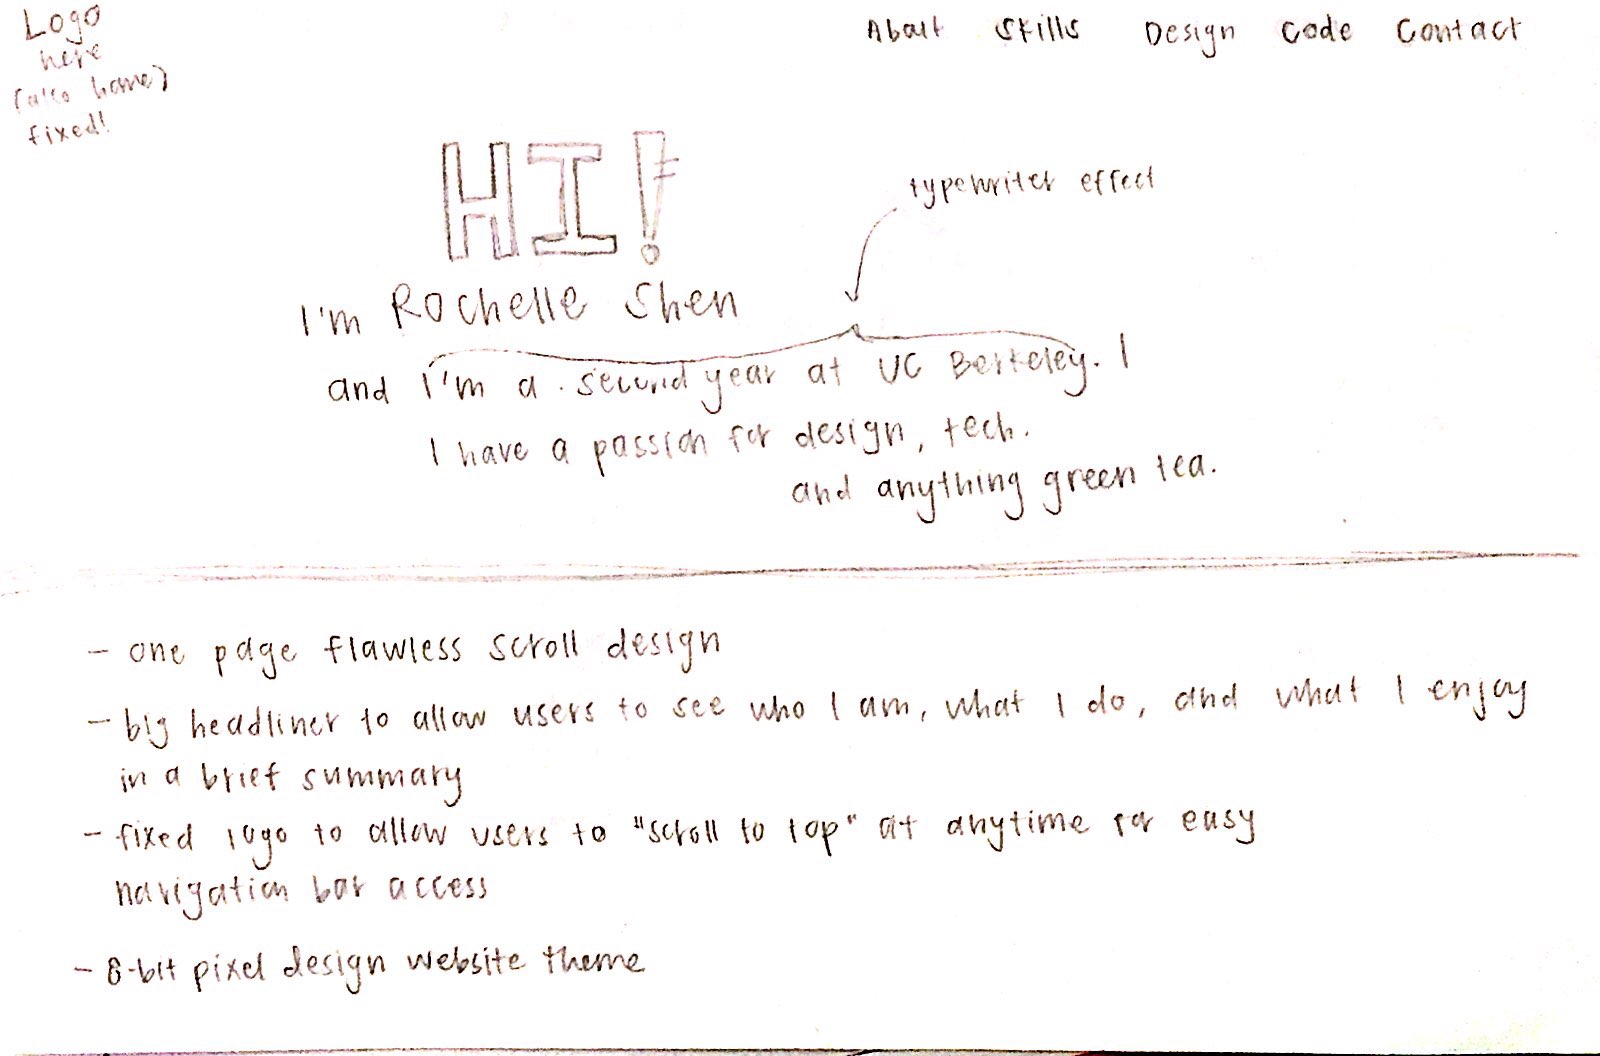 Logo
here
(also home)
fixed!
About Skills Design Code Contact
HI!
typewriter effect
I'm Rochelle Shen
and I'm a second year at UC Berkeley. I
I have a passion for design, tech.
and anything green tea.
- one page flawless scroll design
- big headliner to allow users to see who I am, what I do, and what I enjoy
in a brief summary
- fixed logo to allow users to "scroll to top" at anytime for easy
navigation bar access
- 8-bit pixel design website theme